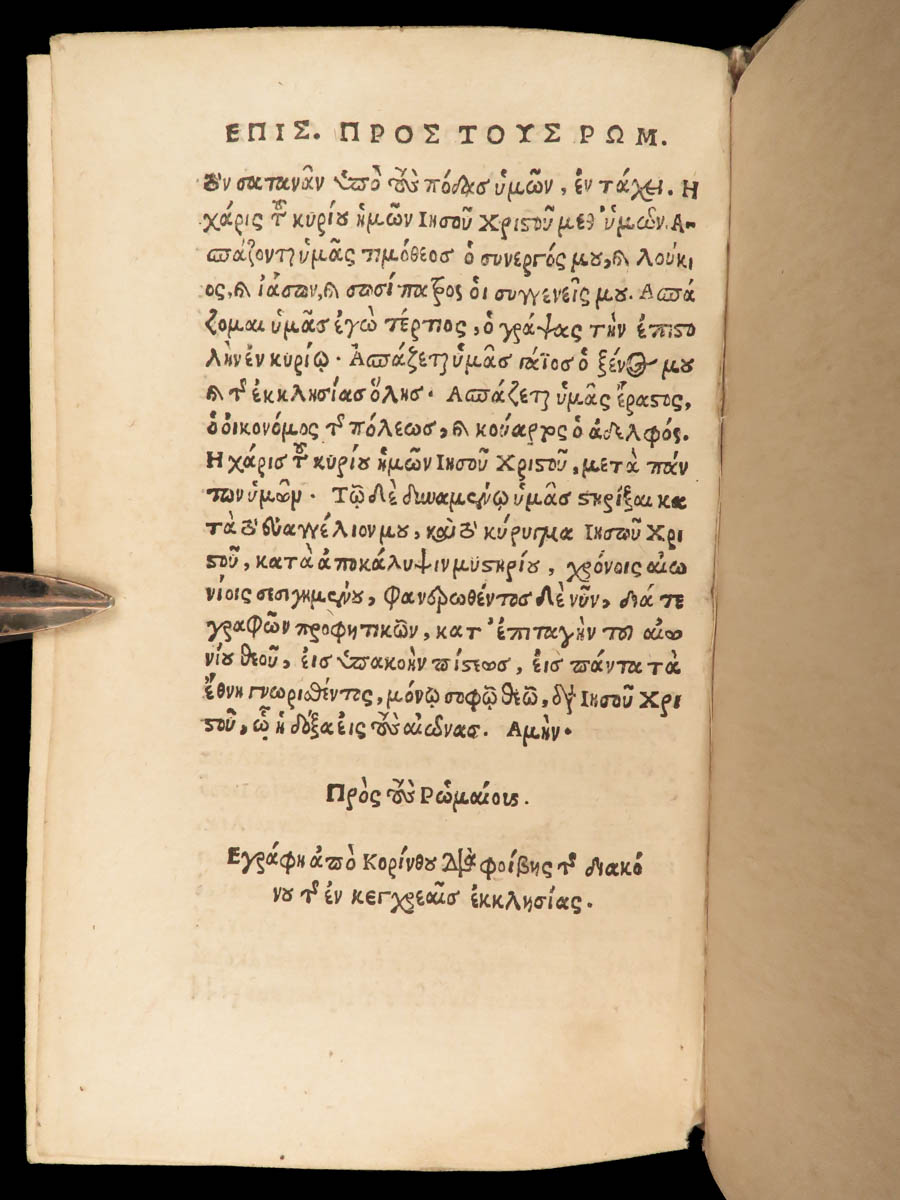 ΕΠΙΣ. ΠΡΟΣ ΤΟΥΣ ΡΩΜ.
τὸν σατανᾶν ὑπὸ τοὺς πόδας ὑμῶν, ἐν τάχει. Η
χάρις τοῦ κυρίου ἡμῶν Ιησοῦ Χριστοῦ μεθ᾽ ὑμῶν. Α-
σπάζονται ὑμᾶς τιμόθεος ὁ συνεργός μου, καὶ λούκι
ος, καὶ ἰάσων, καὶ σωσίπατρος οἱ συγγενεῖς μου. Ασπά
ζομαι ὑμᾶς ἐγὼ τέρτιος, ὁ γράψας τὴν ἐπιστο
λὴν ἐν κυρίῳ. Ασπάζεται ὑμᾶς γάϊος ὁ ξένος μου
καὶ τῆς ἐκκλησίας ὅλης. Ασπάζεται ὑμᾶς ἔραστος,
ὁ οἰκονόμος τῆς πόλεως, καὶ κούαρτος ὁ ἀδελφός.
Η χάρις τοῦ κυρίου ἡμῶν Ιησοῦ Χριστοῦ, μετὰ πάν
των ὑμῶν. Τῷ δὲ δυναμένῳ ὑμᾶς στηρίξαι κα
τὰ τὸ εὐαγγέλιον μου, καὶ τὸ κήρυγμα Ιησοῦ Χρι
στοῦ, κατὰ ἀποκάλυψιν μυστηρίου, χρόνοις αἰω
νίοις σεσιγημένου, φανερωθέντος δὲ νῦν, διά τε
γραφῶν προφητικῶν, κατ᾽ ἐπιταγὴν τοῦ αἰω
νίου θεοῦ, εἰς ὑπακοὴν πίστεως, εἰς πάντα τὰ
ἔθνη γνωρισθέντος, μόνῳ σοφῷ θεῷ, διὰ Ιησοῦ Χρι
στοῦ, ᾧ ἡ δόξα εἰς τοὺς αἰῶνας. Αμήν.
Πρὸς τοὺς Ρωμαίους.
Εγράφη ἀπὸ Κορίνθου διὰ φοίβης τῆς διακό
νου τῆς ἐν κεγχρεαῖς ἐκκλησίας.